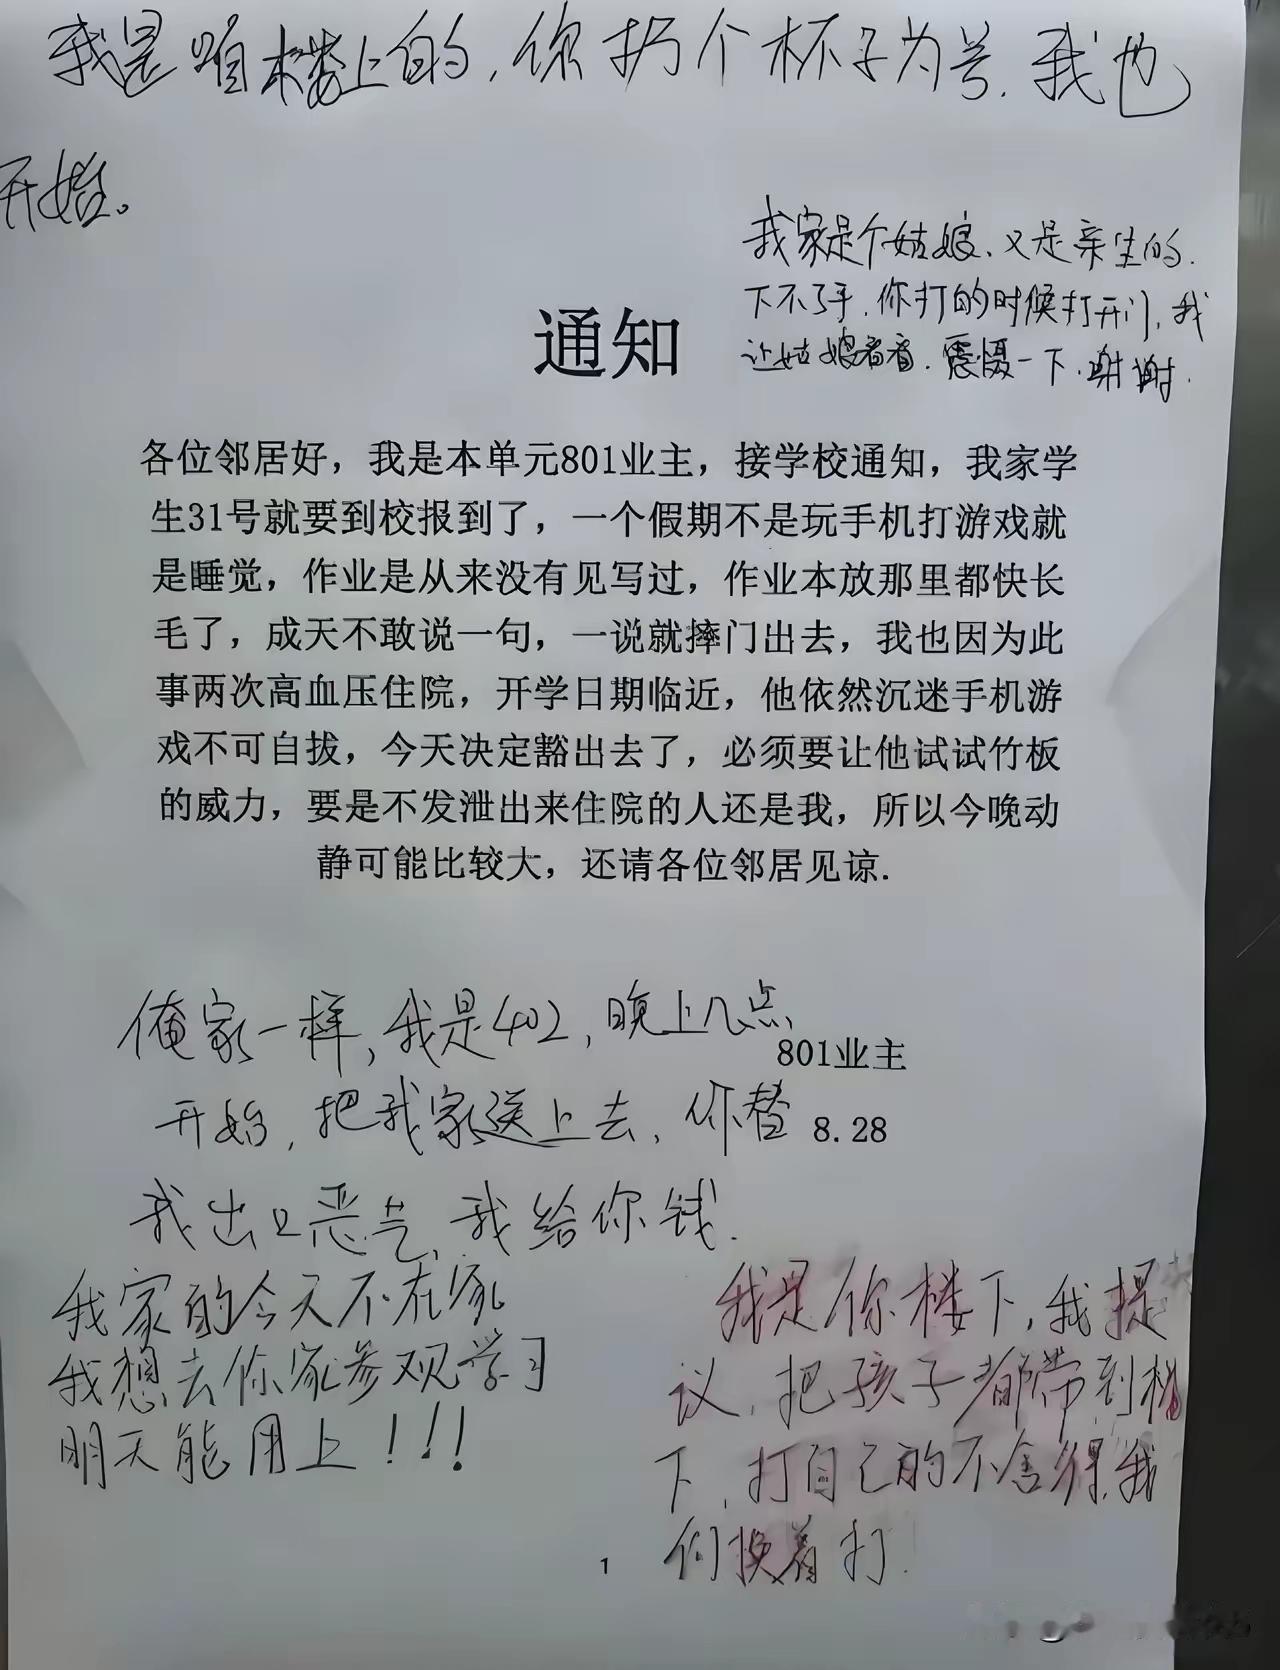 我是咱楼上的，你扔个杯子为号，我也
开始。
我家是个姑娘、又是亲生的.
下不了手，你打的时候打开门，我
让姑娘看看.震慑一下.谢谢.
通知
各位邻居好，我是本单元801业主，接学校通知，我家学
生31号就要到校报到了，一个假期不是玩手机打游戏就
是睡觉，作业是从来没有见写过，作业本放那里都快长
毛了，成天不敢说一句，一说就摔门出去，我也因为此
事两次高血压住院，开学日期临近，他依然沉迷手机游
戏不可自拔，今天决定豁出去了，必须要让他试试竹板
的威力，要是不发泄出来住院的人还是我，所以今晚动
静可能比较大，还请各位邻居见谅.
俺家一样，我是402，晚上几点
开始，把我家送上去，你替
我出口恶气，我给你钱.
801业主
8.28
我家的今天不在家
我想去你家参观学习
明天能用上！！！
我是你楼下，我提
议，把孩子都带到楼
下，打自己的不舍得，我
们换着打.
1